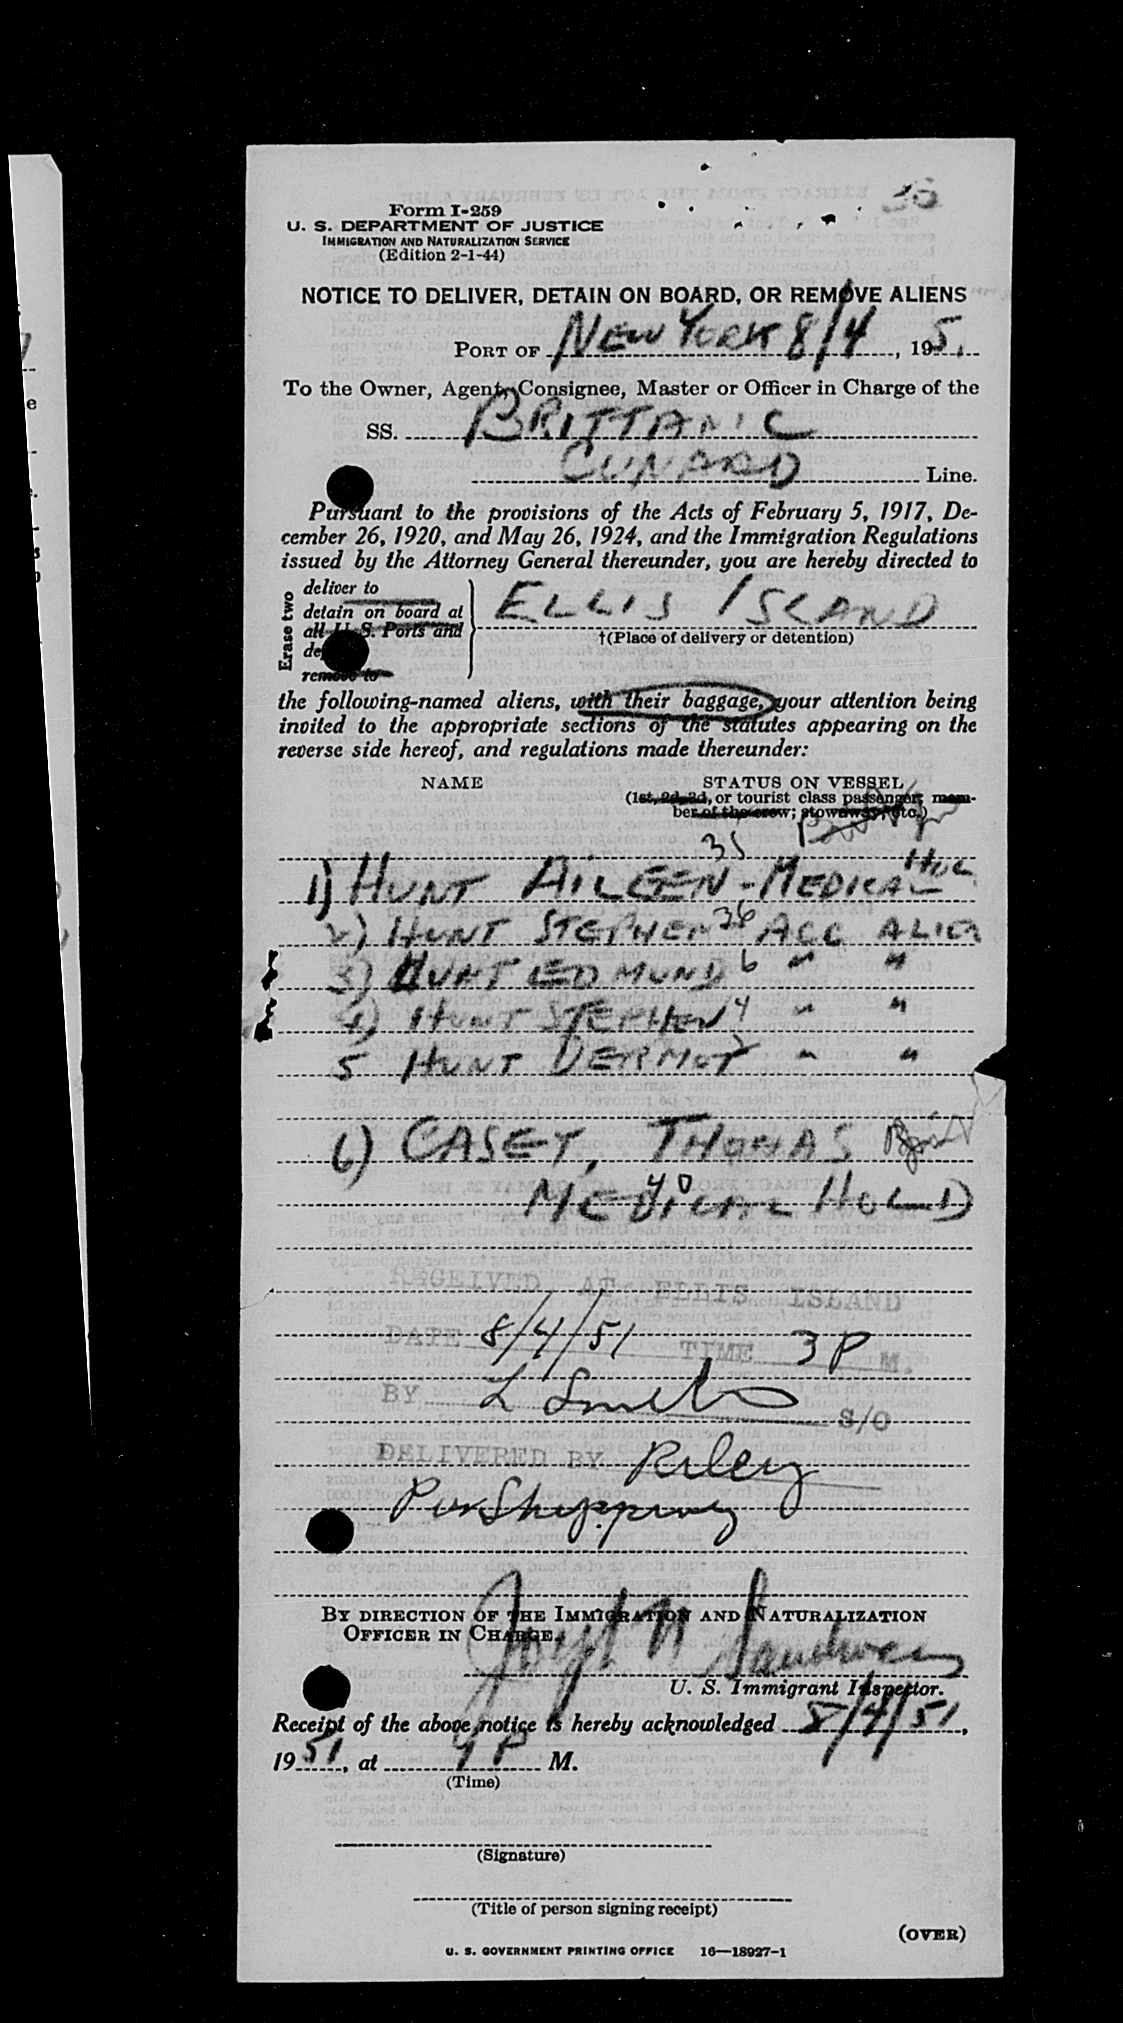 30
Form I-259
U. S. DEPARTMENT OF JUSTICE
IMMIGRATION AND NATURALIZATION SERVICE
(Edition 2-1-44)
NOTICE TO DELIVER, DETAIN ON BOARD, OR REMOVE ALIENS
PORT OF NEW YORK 8/4, 1951
To the Owner, Agent, Consignee, Master or Officer in Charge of the
SS. BRITTANIC
CUNARD Line.
Pursuant to the provisions of the Acts of February 5, 1917, De-
cember 26, 1920, and May 26, 1924, and the Immigration Regulations
issued by the Attorney General thereunder, you are hereby directed to
Erase two
deliver to
detain on board at
all U. S. Ports and
remove to
ELLIS ISLAND
†(Place of delivery or detention)
the following-named aliens, with their baggage, your attention being
invited to the appropriate sections of the statutes appearing on the
reverse side hereof, and regulations made thereunder:
NAME STATUS ON VESSEL
(1st, 2d, 3d, or tourist class passenger; mem-
ber of the crew; stowaway; etc.)
35
1) HUNT AILEEN - MEDICAL HOL
2) HUNT STEPHEN 36 ACC ALIEN
3) HUNT EDMUND 6 " "
4) HUNT STEPHEN 4 " "
5 HUNT DERMOT 2 " "
6) CASEY, THOMAS
40
MEDICAL HOLD
RECEIVED AT ELLIS ISLAND
DATE 8/4/51 TIME 3 P M.
BY L Smith S/O
DELIVERED BY Riley
Pur Shipping
BY DIRECTION OF THE IMMIGRATION AND NATURALIZATION
OFFICER IN CHARGE.
U. S. Immigrant Inspector.
Receipt of the above notice is hereby acknowledged 8/4/51,
1951, at 4 P M.
(Time)
(Signature)
(Title of person signing receipt)
(OVER)
U. S. GOVERNMENT PRINTING OFFICE 16—18927-1